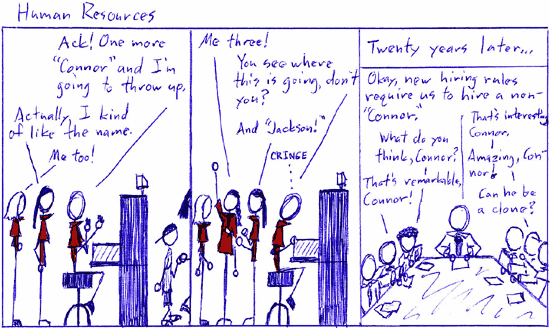 Human Resources
Ack! One more
"Connor" and I'm
going to throw up.
Actually, I kind
of like the name.
Me too!
Me three!
You see where
this is going, don't
you?
And "Jackson!"
CRINGE
Twenty years later...
Okay, new hiring rules
require us to hire a non-
"Connor."
What do you
think, Connor?
That's remarkable,
Connor!
That's interesting,
Connor.
Amazing, Con-
nor!
Can he be
a clone?